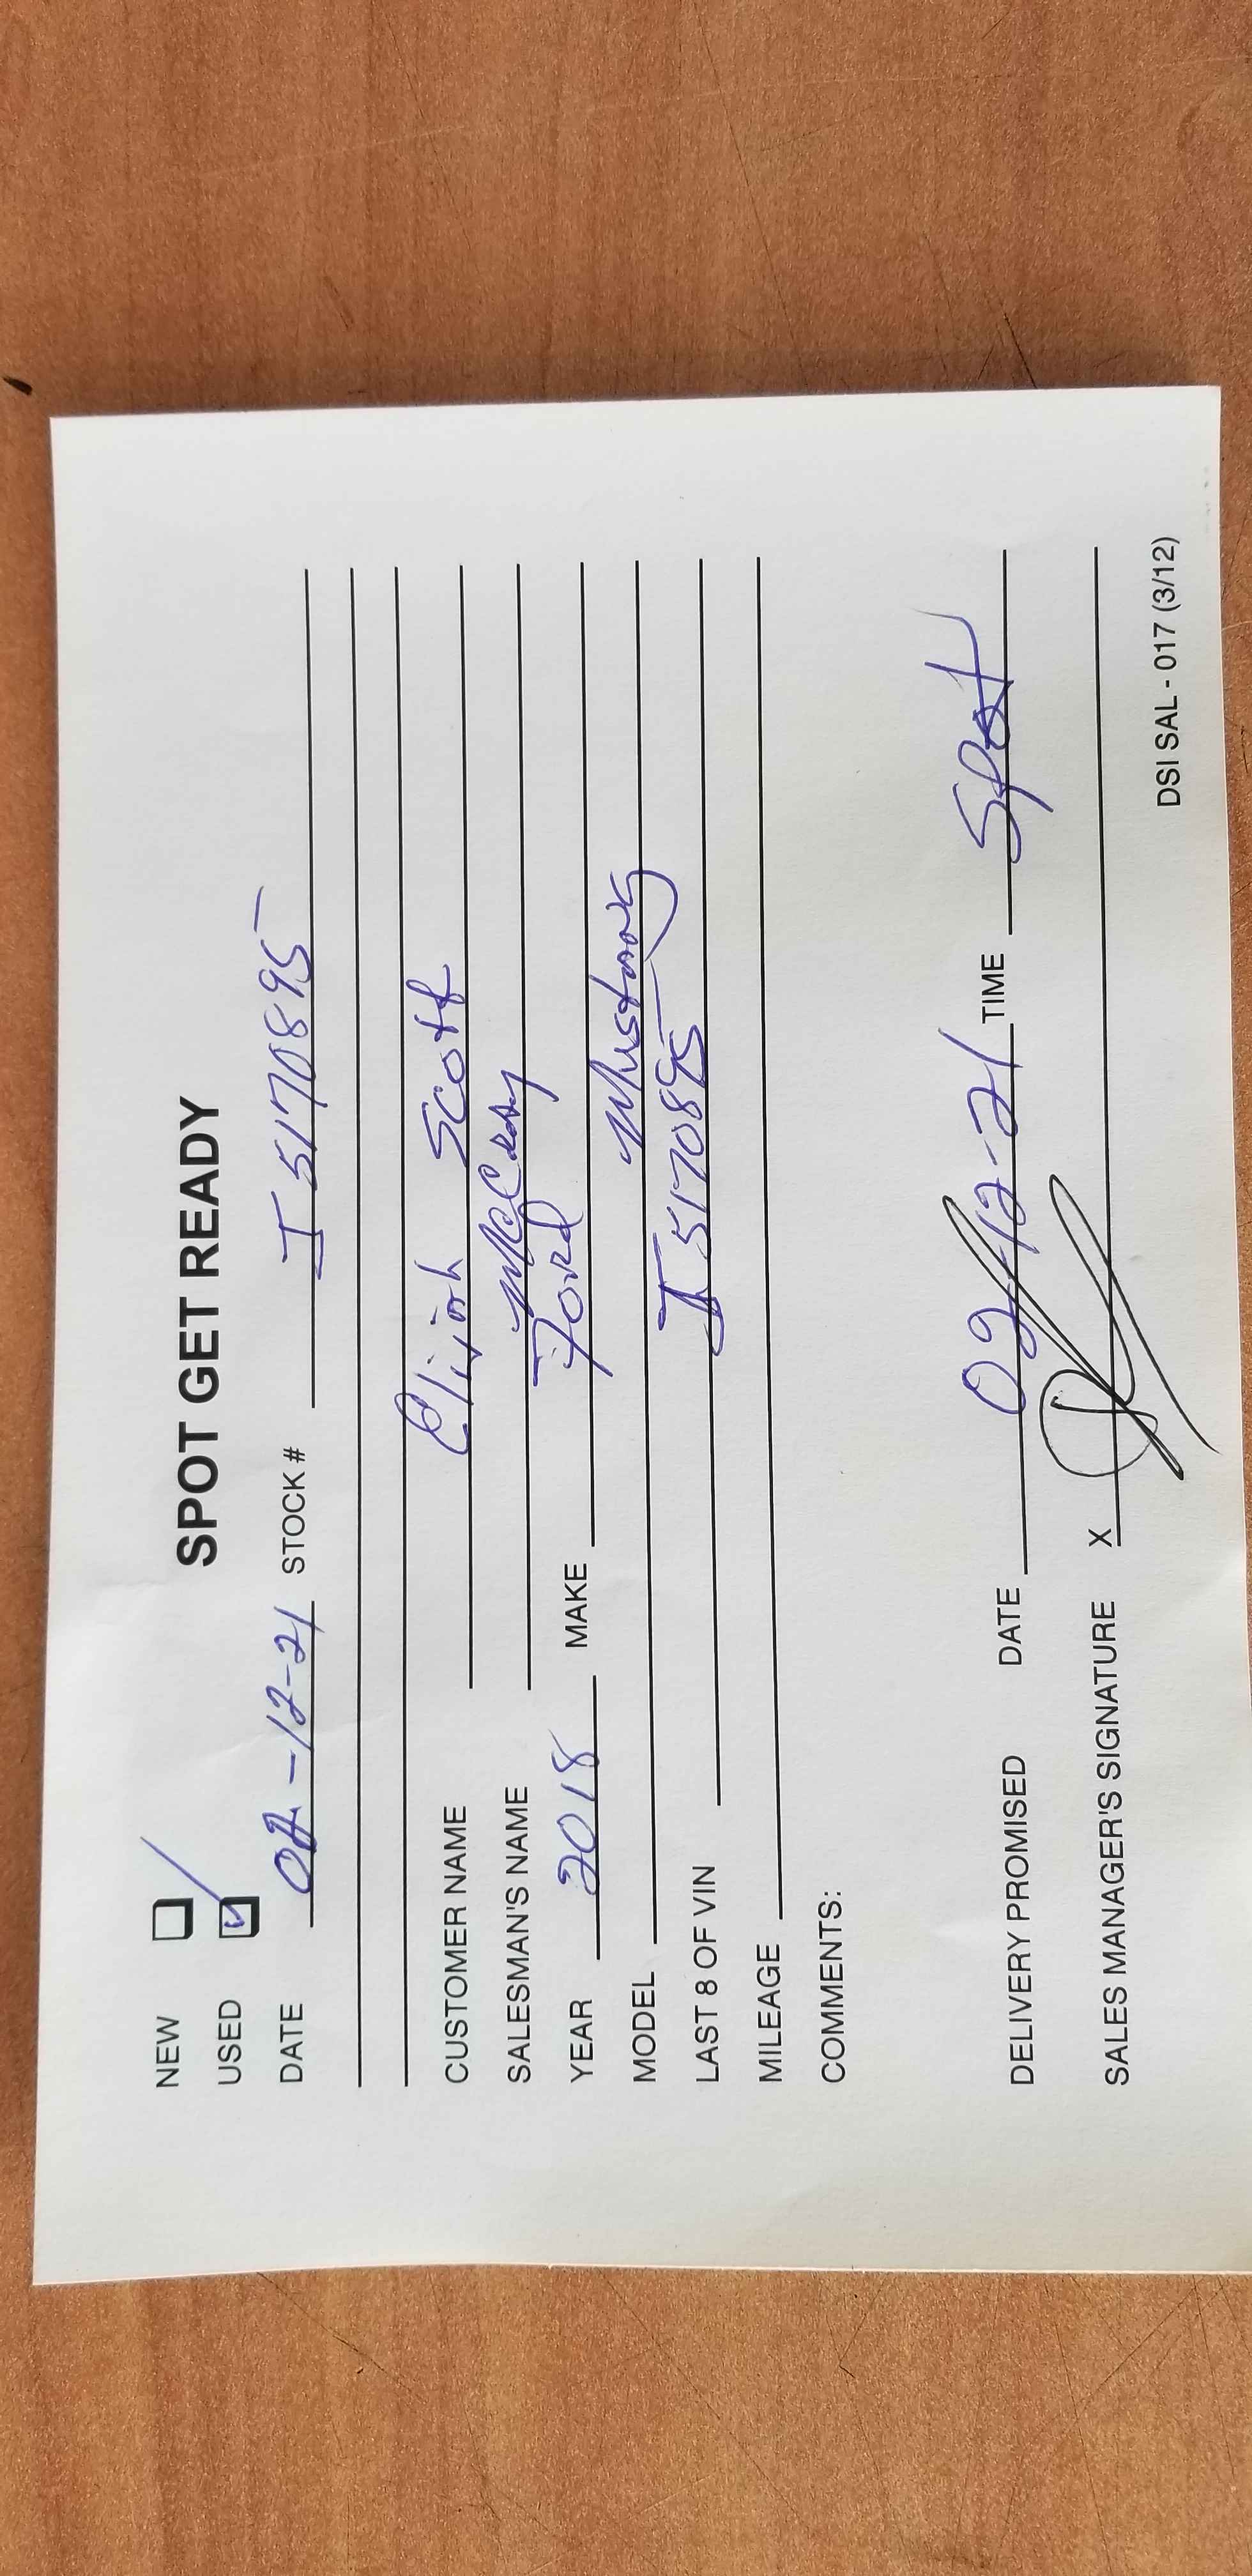 SPOT GET READY
NEW
USED
DATE 02-12-21 STOCK # J5170895
CUSTOMER NAME Elijah Scott
SALESMAN'S NAME McCray
YEAR 2018 MAKE Ford
MODEL Mustang
LAST 8 OF VIN J5170895
MILEAGE
COMMENTS:
DELIVERY PROMISED DATE 02-12-21 TIME Spot
SALES MANAGER'S SIGNATURE X
DSI SAL - 017 (3/12)